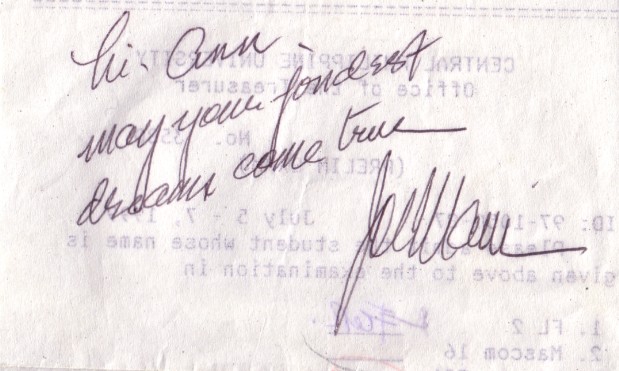 hi- Ann
may your fondest
dreams come true
CENTRAL PHILIPPINE UNIVERSITY
Office of the Treasurer
No.
ID:
July 5 - 7,
student whose name is
given above to the examination in
1. FL 2
2. Mascom 16